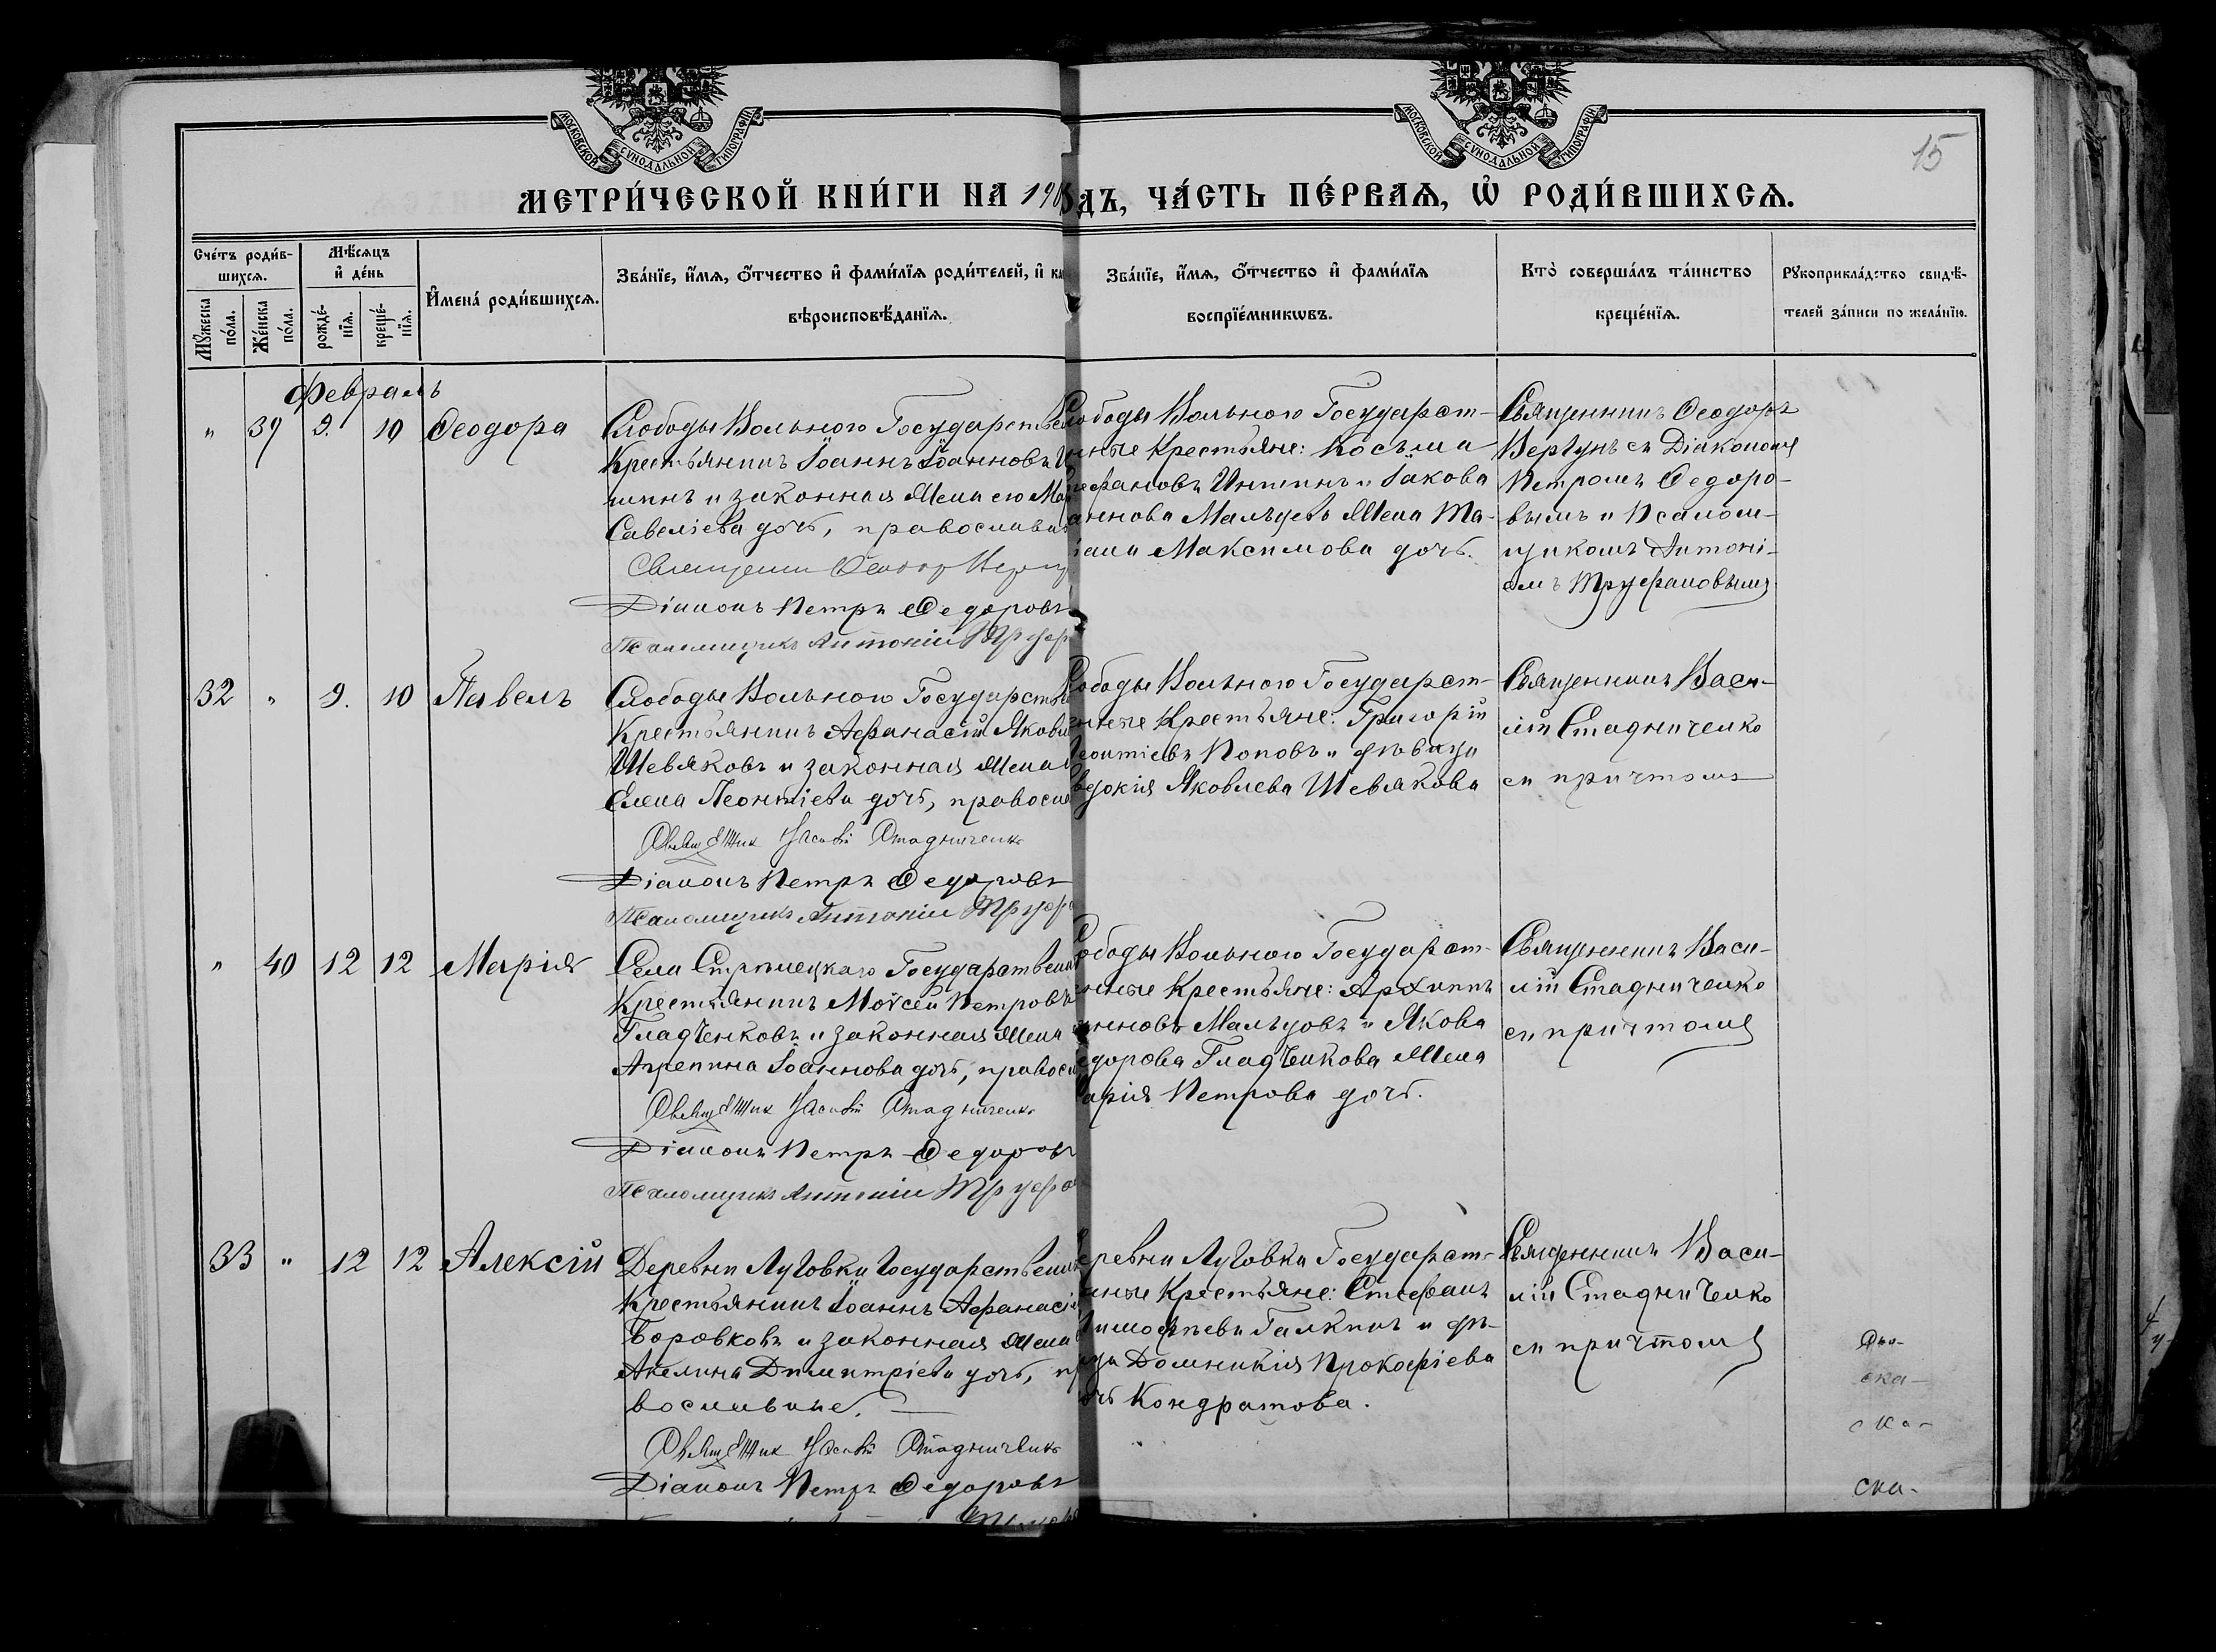 МОСКОВСКОЙ СУНОДАЛЬНОЙ ТИПОГРАФІИ
МОСКОВСКОЙ СУНОДАЛЬНОЙ ТИПОГРАФІИ
15
МЕТРИ́ЧЕСКОЙ КНИ́ГИ НА 190 ДЪ, ЧА́СТЬ ПЕ́РВАѦ, Ѽ РОДИ́ВШИХСѦ.
Сче́тъ роди́в-
шихсѧ.
Мꙋ́жеска по́ла.
Же́нска по́ла.
Мѣ́сѧцъ и҆ де́нь
рожде́-
нїѧ.
креще́-
нїѧ.
И҆мена̀ роди́вшихсѧ.
Зва́нїе, и҆́мѧ, ѻ҆́тчество и҆ фами́лїѧ роди́телей, и҆ ка
вѣроисповѣ́данїѧ.
Зва́нїе, и҆́мѧ, ѻ҆́тчество и҆ фами́лїѧ
воспрїе́мникѡвъ.
Кто̀ соверша́лъ та́инство
креще́нїѧ.
Рꙋкоприкла́дство свидѣ́-
телей за́писи по жела́нїю.
Февраль
" 39 9. 10 Ѳеодора
Слободы Вольного Государствен
Крестьянинъ Іоаннъ Іоанновъ
шинъ и законная жена его Мар
Савеліева дочь, православн
Священникъ Ѳеодор
Діаконъ Петръ Ѳедоровъ
Псаломщикъ Антоній Труфан
ободы Вольного Государст-
нные Крестьяне: Косьма
ефановъ Иншинъ и Іакова
аннова Мальцевъ жена Та-
іана Максимова дочь.
Священникъ Ѳеодоръ
Вергунъ съ Діакономъ
Петромъ Ѳедоро-
вымъ и Псалом-
щикомъ Антоні-
емъ Труфановымъ
32 " 9. 10 Павелъ
Слободы Вольного Государстве
Крестьянинъ Аѳанасій Яковл
Шевляковъ и законная жена
Елена Леонтіева дочь, правосла
Священник Василій Стадниченко
Діаконъ Петръ Ѳедоровъ
Псаломщикъ Антоній Труфа
ободы Вольного Государст-
нные Крестьяне: Григорій
Леонтіевъ Поповъ и дѣвица
вдокія Яковлева Шевлякова
Священникъ Васи-
лій Стадниченко
съ причтомъ
" 40 12 12 Марія
Села Стрѣлецкаго Государственн
Крестьянинъ Моѵсей Петровъ
Гладченковъ и законная жена
Агрепина Іоаннова дочь, правосл
Священник Василій Стадниченко
Діаконъ Петръ Ѳедоровъ
Псаломщикъ Антоній Труфа
ободы Вольного Государст-
нные Крестьяне: Архиппъ
анновъ Мальцовъ и Якова
едорова Гладченкова жена
арія Петрова дочь.
Священникъ Васи-
лій Стадниченко
съ причтомъ
33 " 12 12 Алексій
Деревни Луговки Государственн
Крестьянинъ Іоаннъ Аѳанасі
Боровковъ и законная жена
Акелина Димитріева дочь, пр
вославные.
Священник Василій Стадниченко
Діаконъ Петръ Ѳедоровъ
еревни Луговки Государст-
нные Крестьяне: Стефанъ
Тимоѳѣевъ Галкинъ и дѣ-
ица Домникія Прокофіева
очь Кондратова.
Священникъ Васи-
лій Стадниченко
съ причтомъ
ска-
ска-
ска-